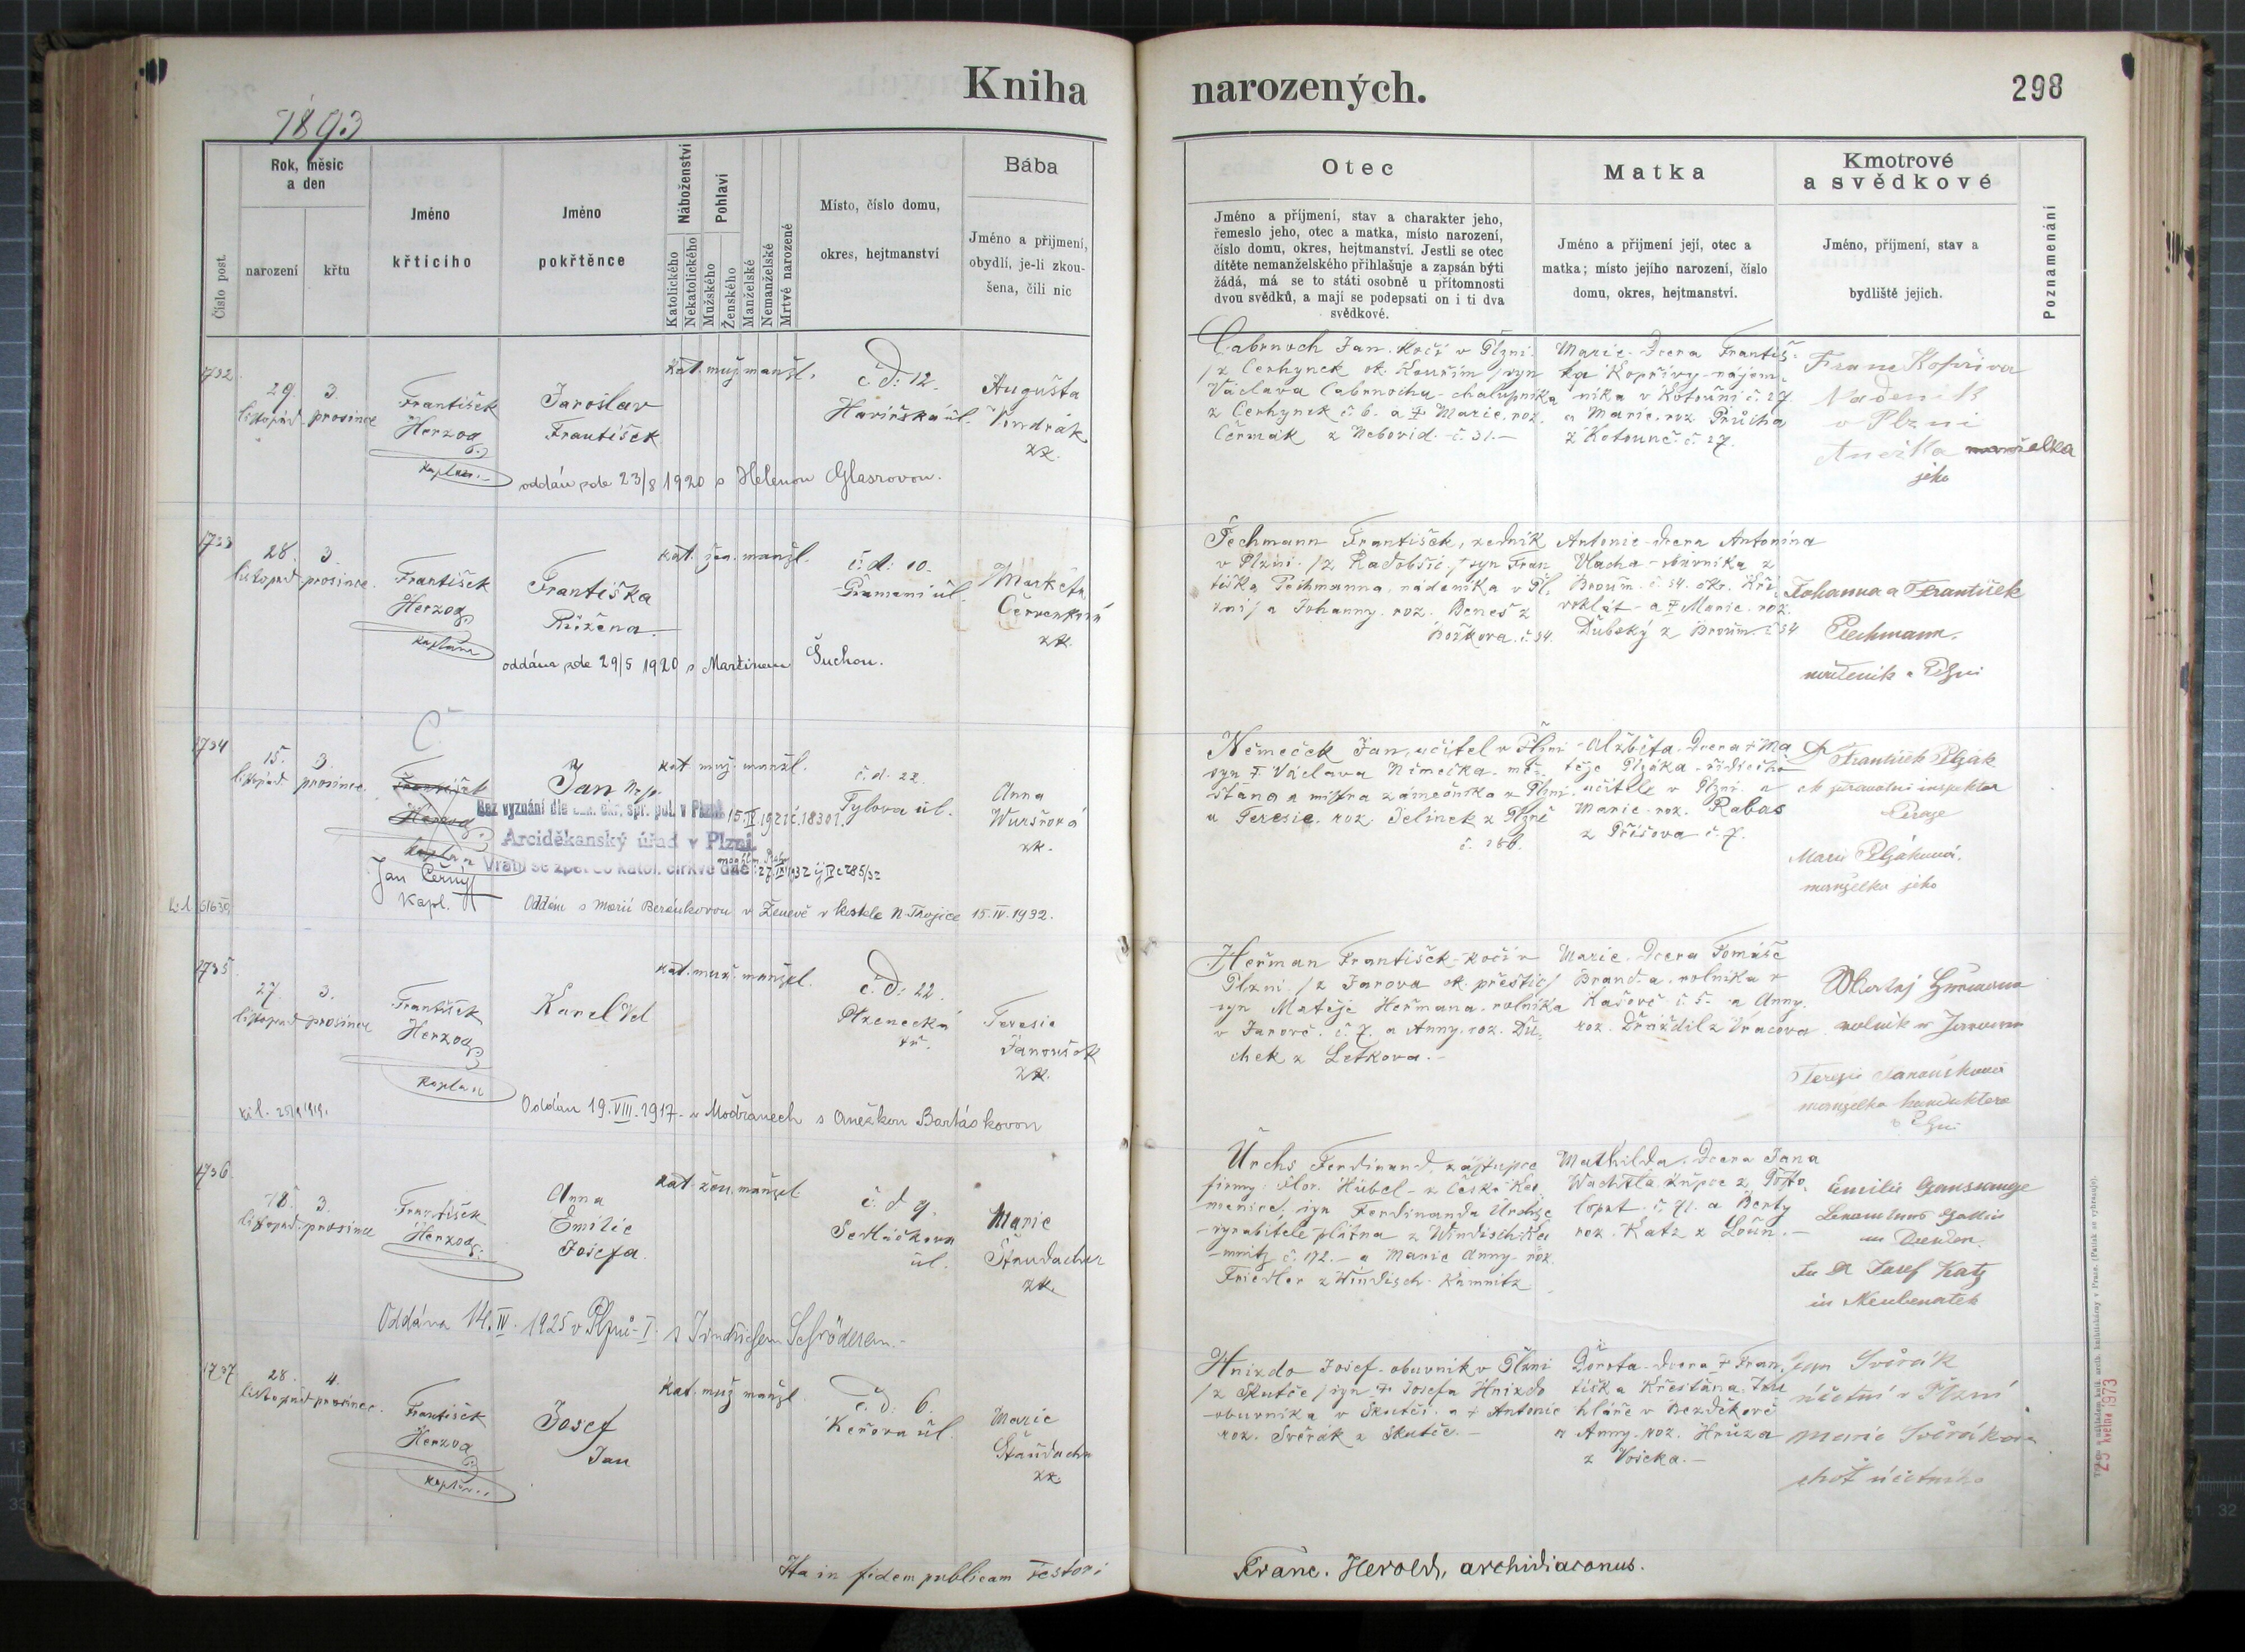 Kniha
narozených.
298
1893
Číslo post.
Rok, měsíc
a den
narození
křtu
Jméno
křticího
Jméno
pokřtěnce
Náboženství
Katolického
Nekatolického
Pohlaví
Mužského
Ženského
Manželské
Nemanželské
Mrtvě narozené
Místo, číslo domu,
okres, hejtmanství
Bába
Jméno a přijmení,
obydlí, je-li zkou-
šena, čili nic
Otec
Jméno a příjmení, stav a charakter jeho,
řemeslo jeho, otec a matka, místo narození,
číslo domu, okres, hejtmanství. Jestli se otec
dítěte nemanželského přihlašuje a zapsán býti
žádá, má se to státi osobně u přítomnosti
dvou svědků, a mají se podepsati on i ti dva
svědkové.
Matka
Jméno a přijmení její, otec a
matka; místo jejího narození, číslo
domu, okres, hejtmanství.
Kmotrové
a svědkové
Jméno, příjmení, stav a
bydliště jejich.
Poznamenání
1732
29. 3.
listopad prosince
František
Herzog
kaplan
Jaroslav
František
kat. muž. manžl.
č d: 12.
Havířská úl.
Augusta
Vondrák
zk.
oddán zde 23/8 1920 s Helenou Glasrovou.
Cabrnoch Jan. kočí v Plzni
/z Cerhynek ok. Kouřim/ syn
Václava Cabrnocha - chalupníka
z Cerhynek č 6. a † Marie. roz.
Čermák z Nebovid. č. 31.-
Marie. dcera Františ-
ka Kopřivy - nájem-
níka v Kotouni č. 27
a Marie. roz. Průcha
z Kotouně. č. 27.
Franc Kopřiva
Nadeník
v Plzni
Anežka manželka
jeho
1733
28. 3.
listopad prosince.
František
Herzog
kaplan
Františka
Růžena.
kat. žen. manžl.
č: d: 10.
Pramení úl.
Markéta
Červenková
zk.
oddána zde 29/5 1920 s Martinem Suchou.
Pechmann František, zedník
v Plzni. /z Radobčic./ syn Fran
tiška Pechmanna, nádeníka v Pl.
zni/ a Johanny. roz. Beneš z
Božkova. č. 34.
Antonie - dcera Antonína
Vlacha - obuvníka z
Broum. č 54. okr. Kři
voklát - a † Marie. roz.
Dubský z Broum. č 54
Johanna a František
Pechmann.
1734
15. 3.
listopad prosince
František
Herzog
kaplan
Jan Černý
kapl.
Jan
kat muž. manžl.
č. d. 22.
Tylova úl.
Anna
Wuršrová
zk.
Bez vyznání dle c.k. okr. spr. pol. v Plzni 15. 1921 č. 18301.
Arciděkanský úřad v Plzni.
Vrátil se zpět do katol. církve dne
Oddán s Marií Beránkovou v Ženevě v kostele N. Trojice 15. IV. 1932.
Němeček Jan, učitel v Plzni
syn † Václava Němečka - mě-
šťana a mistra zámečníka z Plzni.
a Teresie. roz. Jelínek z Plzně
Alžběta - dcera † Ma
těje Plzáka - řídícího
učitele v Plzni a
Marie - roz. Rabas
z Příšova č. 7.
František Plzák
inspektor
Praze
Marie Plzáková,
manželka jeho
1735
27. 3.
listopad prosince
František
Herzog
kaplan
Karel
kat. muž. manžel.
č. d: 22.
Plzenecká
Teresie
Janoušek
zk.
Oddán 19. VIII. 1917. v Modřanech s Anežkou Bartáskovou
Heřman František - kočí v
Plzni. /z Jarova ok. přeštic/
syn Matěje Heřmana. rolníka
v Jarově. č. 7. a Anny. roz. Du-
chek z Letkova. -
Marie. dcera Tomáše
Branda, rolníka v
Kašově č. 5. a Anny.
roz. Draždil z Vracova
rolník
Teresie Janoušková
manželka konduktera
v Plzni
1736
18. 3.
listopad. prosince
František
Herzog
Anna
Emilie
Josefa.
kat. žen. manžel
č. d 9.
Sedláčkova
úl.
Marie
Štaudacher
zk.
Oddána 14. IV. 1925 v Plzni - I. s Jindřichem Schröderem. -
Urchs Ferdinand, zástupce
firmy Flor. Hübel - z České Ka
menice/, syn Ferdinanda Urchse
- vyrabitele plátna z Windisch Ka
- mnitz č. 172. - a Marie Anny - roz.
Friedler z Windisch. Kamnitz
Mathilda. dcera Jana
Wachtla, kupce z Posto
lopat. č 71. a Berty
roz. Katz z Loun. -
Emilie
Josef Katz
in Neubenatek
1737
28. 4.
listopad prosince.
František
Herzog
kaplan
Josef
Jan
kat. muž manžl.
č. d: 6.
Keřova úl.
Marie
Štaudacher
zk.
Hnízdo Josef - obuvník v Plzni
/z Skutče/ syn † Josefa Hnízdo
- obuvníka v Skutči. a † Antonie
roz. Svěrák z Skutče. -
Dorota - dcera † Fran
tiška Křesťana, Tru
hláře v Bezděkově
a Anny. roz. Hrůza
z Vojcka. -
Jan Svěrák
účetní v Plzni
Marie Svěráková
choť účetního
Ita in fidem publicam testor:
Franc. Herold, archidiaconus.
29 května 1973